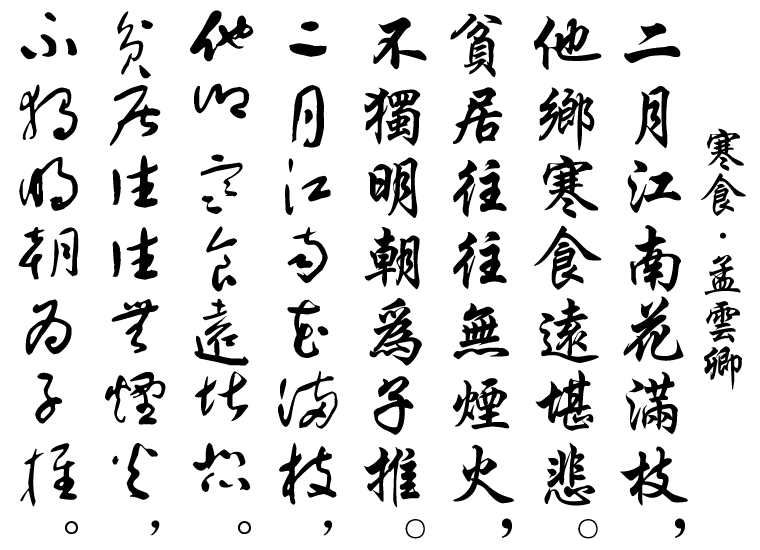 寒食·孟雲卿
二月江南花滿枝，
他鄉寒食遠堪悲。
貧居往往無煙火，
不獨明朝爲子推。
二月江南花滿枝，
他鄉寒食遠堪悲。
貧居往往無煙火，
不獨明朝爲子推。